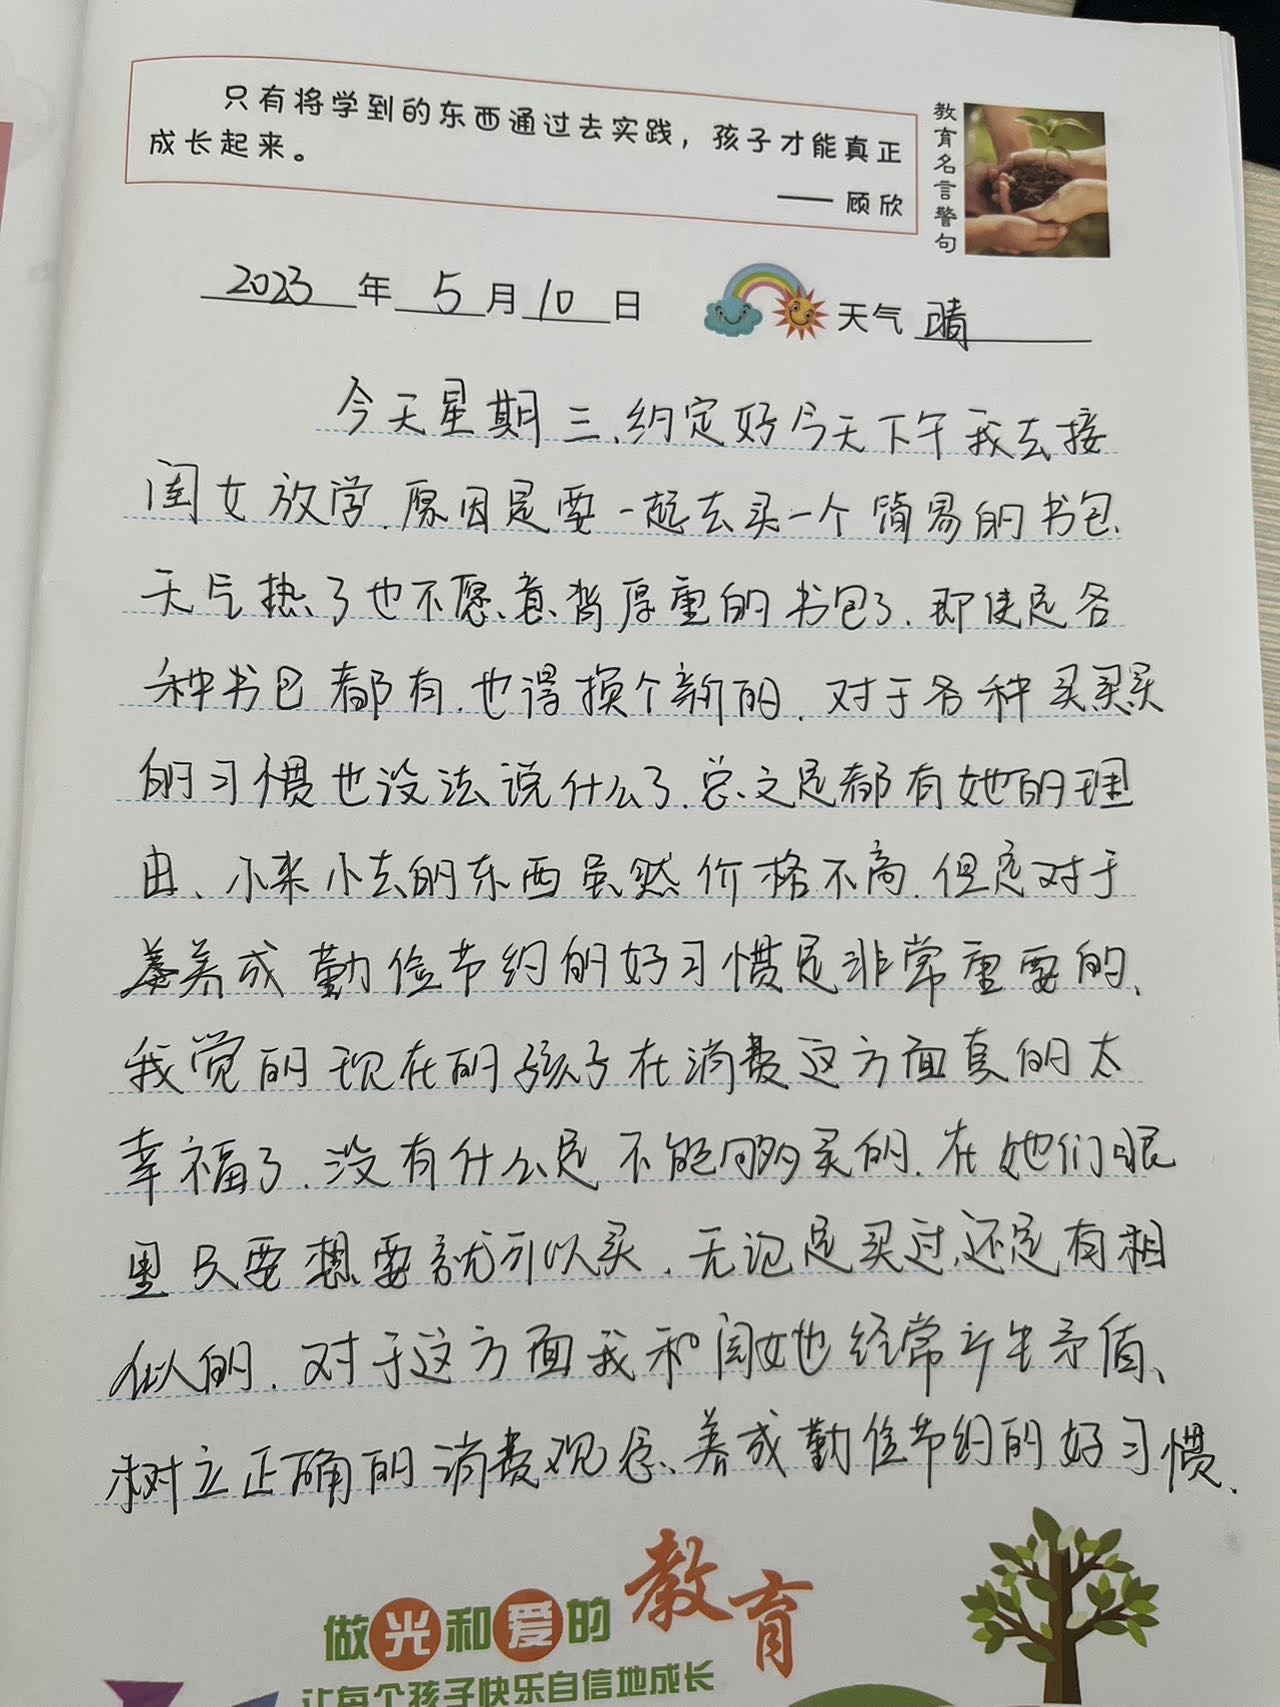 只有将学到的东西通过去实践，孩子才能真正
成长起来。
—— 顾欣
教育名言警句
2023 年 5 月 10 日
天气 晴
今天星期三、约定好今天下午我去接
闺女放学.原因是要一起去买一个简易的书包.
天气热了也不愿意背厚重的书包了.即使是各
种书包都有.也得换个新的.对于各种买买买
的习惯也没法说什么了.总之是都有她的理
由、小来小去的东西虽然价格不高.但是对于
养成勤俭节约的好习惯是非常重要的、
我觉的现在的孩子在消费这方面真的太
幸福了.没有什么是不能够买的.在她们眼
里只要想要就可以买.无论是买过还是有相
似的.对于这方面我和闺女也经常产生矛盾、
树立正确的消费观念、养成勤俭节约的好习惯.
做光和爱的教育
让每个孩子快乐自信地成长